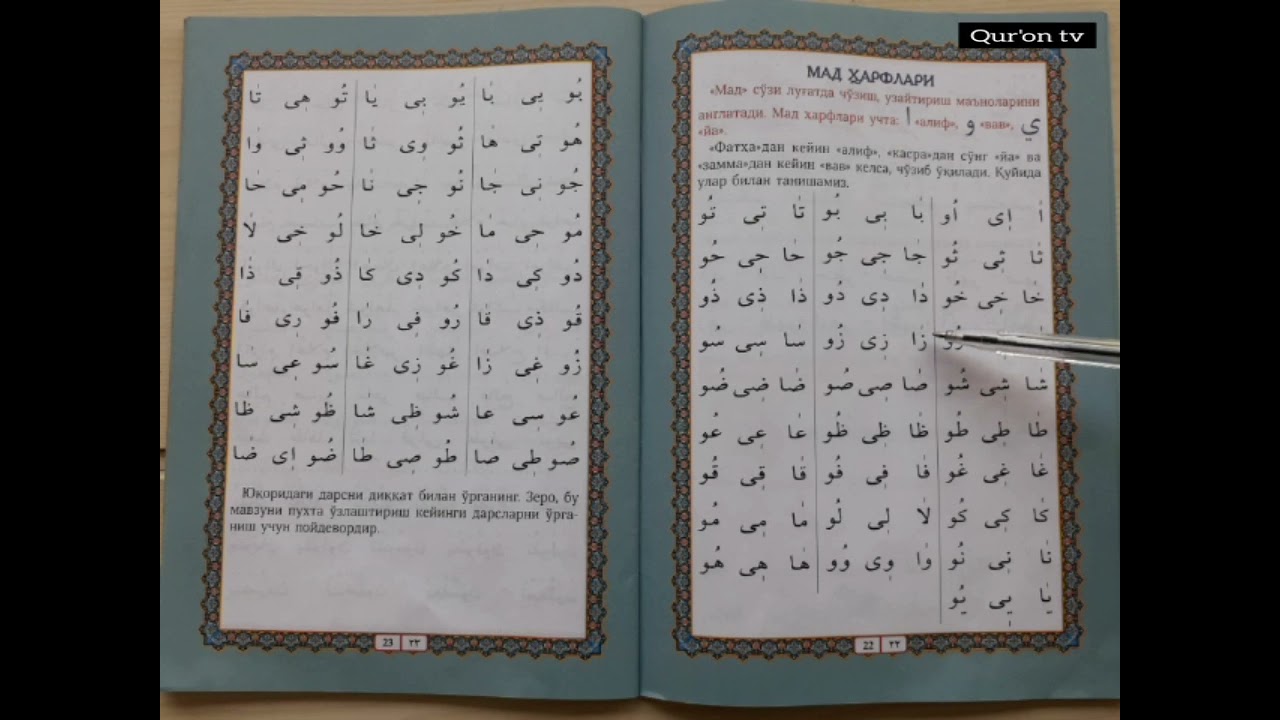 Qur'on tv
МАД ҲАРФЛАРИ
«Мад» сўзи луғатда чўзиш, узайтириш маъноларини
англатади. Мад ҳарфлари учта: ا «алиф», و «вав», ي
«йа».
«Фатҳа»дан кейин «алиф», «касра»дан сўнг «йа» ва
«замма»дан кейин «вав» келса, чўзиб ўқилади. Қуйида
улар билан танишамиз.
اَ اِى اُو بَا بِى بُو تَا تِى تُو
ثَا ثِى ثُو جَا جِى جُو حَا حِى حُو
خَا خِى خُو دَا دِى دُو ذَا ذِى ذُو
رُو زَا زِى زُو سَا سِى سُو
شَا شِى شُو صَا صِى صُو ضَا ضِى ضُو
طَا طِى طُو ظَا ظِى ظُو عَا عِى عُو
غَا غِى غُو فَا فِى فُو قَا قِى قُو
كَا كِى كُو لَا لِى لُو مَا مِى مُو
نَا نِى نُو وَا وِى وُو هَا هِى هُو
يَا يِى يُو
22 ٢٢
بُو يِى بَا يُو بِى يَا تُو هِى تَا
هُو تِى هَا ثُو وِى ثَا وُو ثِى وَا
جُو نِى جَا نُو جِى نَا حُو مِى حَا
مُو حِى مَا خُو لِى خَا لُو خِى لَا
دُو كِى دَا كُو دِى كَا ذُو قِى ذَا
قُو ذِى قَا رُو فِى رَا فُو رِى فَا
زُو غِى زَا غُو زِى غَا سُو عِى سَا
عُو سِى عَا شُو ظِى شَا ظُو شِى ظَا
صُو طِى صَا طُو صِى طَا ضُو اِى ضَا
Юқоридаги дарсни диққат билан ўрганинг. Зеро, бу
мавзуни пухта ўзлаштириш кейинги дарсларни ўрга-
ниш учун пойдевордир.
23 ٢٣